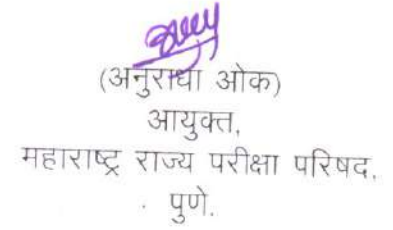 (अनुराधा ओक)
आयुक्त,
महाराष्ट्र राज्य परीक्षा परिषद,
पुणे.